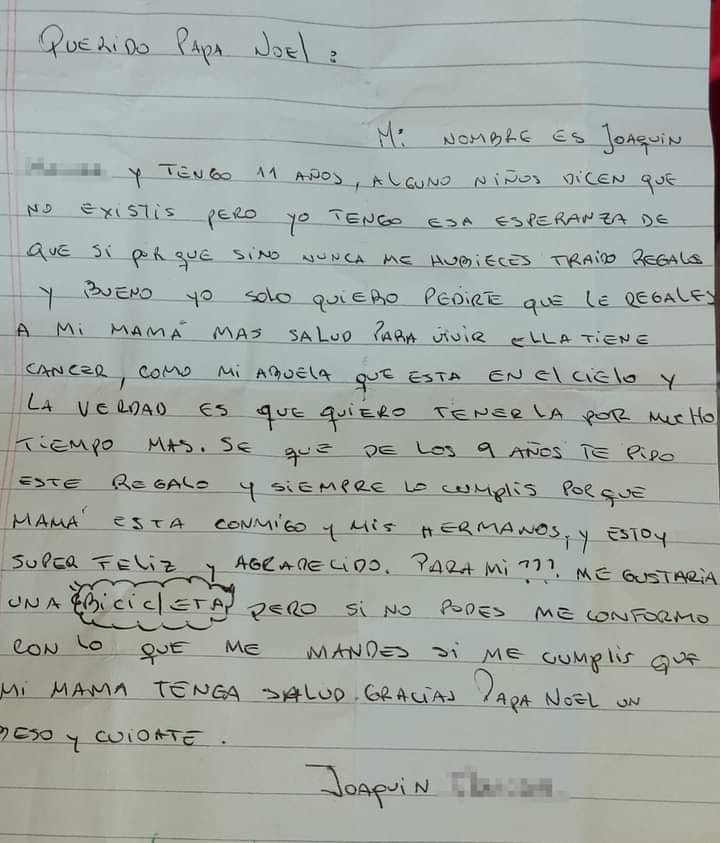 QUERIDO PAPA NOEL :
Mi NOMBRE ES JOAQUIN
Y TENGO 11 AÑOS, ALGUNO NIÑOS DICEN QUE
NO EXISTIS PERO YO TENGO ESA ESPERANZA DE
QUE SI POR QUE SINO NUNCA ME HUBIECES TRAIDO REGALS
Y BUENO YO SOLO QUIERO PEDIRTE QUE LE REGALES
A MI MAMÁ MAS SALUD PARA VIVIR ELLA TIENE
CANCER, COMO MI ABUELA QUE ESTA EN El CIELO Y
LA VERDAD ES QUE QUIERO TENERLA POR MUCHO
TIEMPO MAS. SE QUE DE LOS 9 AÑOS TE PIDO
ESTE REGALO Y SIEMPRE LO CUMPLIS PORQUE
MAMÁ ESTA CONMIGO Y MIS HERMANOS, Y ESTOY
SUPER FELIZ Y AGRADECIDO. PARA MI ??? ME GUSTARIA
UNA BICICLETA PERO SI NO PODES ME CONFORMO
CON LO QUE ME MANDES SI ME CUMPLIS QUE
MI MAMA TENGA SALUD. GRACIAS PAPA NOEL UN
BESO Y CUIDATE .
JOAQUIN